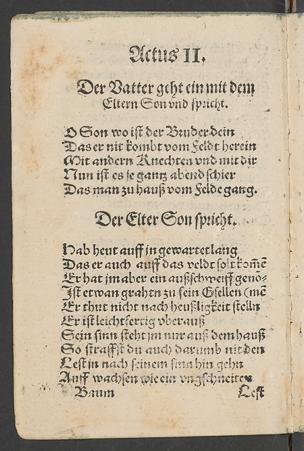 Actus II.
Der Vatter geht ein mit dem
Eltern Son vnd spricht.
O Son wo ist der Bruder dein
Das er nit kombt vom Feldt herein
Mit andern Knechten vnd mit dir
Nun ist es je gantz abend schier
Das man zu hauß vom Felde gang.
Der Elter Son spricht.
Hab heut auff in gewartet lang
Das er auch auff das veldt solt kom̃e
Er hat jm aber ein außschweiff genō-
Ist etwan grahtn zu sein Gsellen (mē
Er thut nicht nach heußligkeit stelln
Er ist leichtfertig vberauß
Sein sinn steht jm nur auß dem hauß
So straffst du auch darumb nit den
Lest jn nach seinem sinn hin gehn
Auff wachsen wie ein vngschneiten
Baum
Lest